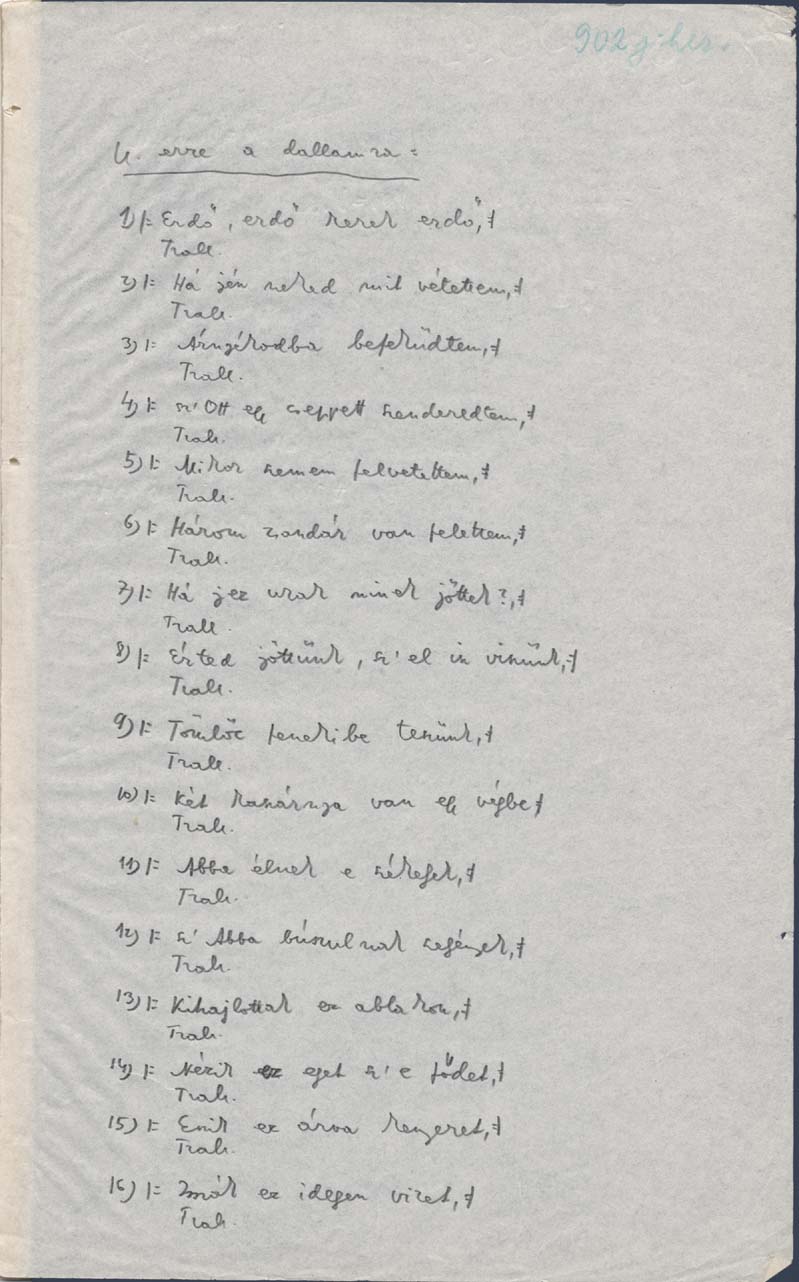 902 j-hez.
U. erre a dallamra:
1) |: Erdő, erdő kerek erdő, :|
Trall.
2) |: Há jén neked mit vétettem, :|
Trall.
3) |: Árnyékodba befeküdtem, :|
Trall.
4) |: sz' Ott egy cseppett szenderedtem, :|
Trall.
5) |: Mikor szemem felvetettem, :|
Trall.
6) |: Három zsandár van felettem, :|
Trall.
7) |: Há jez urak minek jöttek?, :|
Trall.
8) |: Érted jöttünk, sz' el is viszünk, :|
Trall.
9) |: Tömlöc fenekibe teszünk, :|
Trall.
10) |: Két kaszárnya van egy végbe, :|
Trall.
11) |: Abba élnek e székejek, :|
Trall.
12) |: sz' Abba búszulnak szegények, :|
Trall.
13) |: Kihajlottak ez ablakon, :|
Trall.
14) |: Nézik ez eget sz' e födet, :|
Trall.
15) |: Eszik ez árva kenyeret, :|
Trall.
16) |: Isszák ez idegen vizet, :|
Trall.